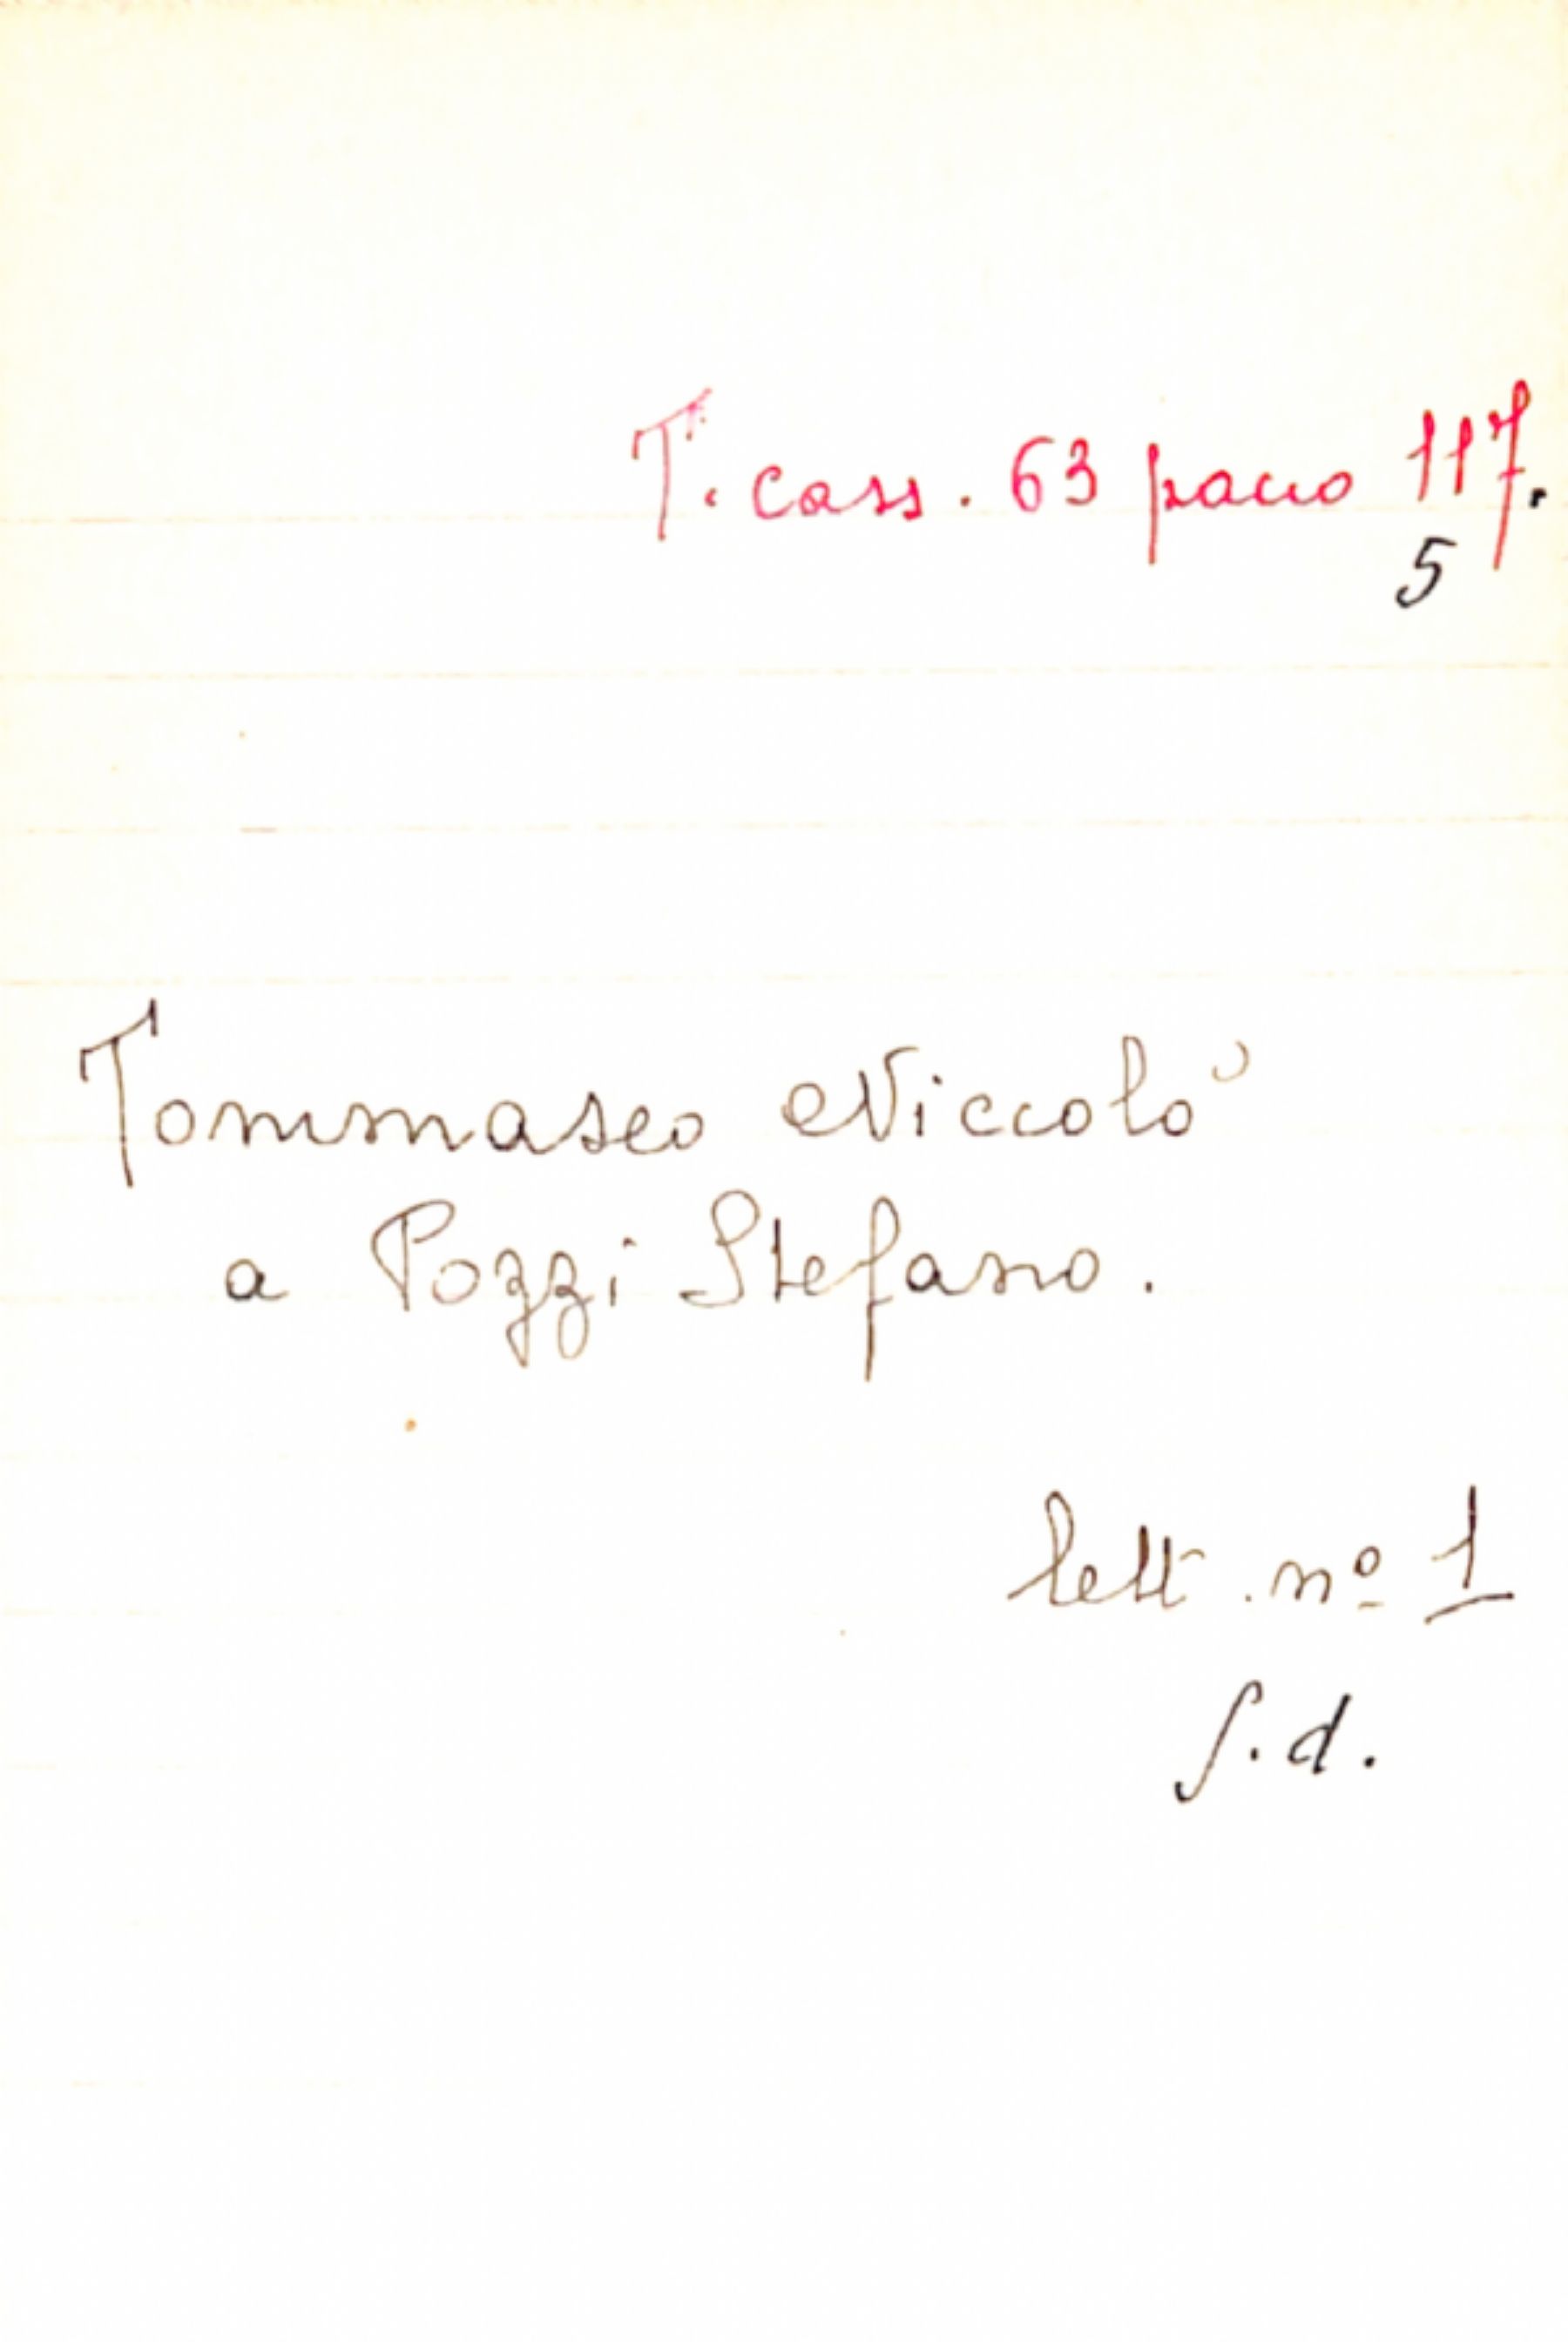 T. cass. 63 pacco 117.
5
Tommaseo Niccolò
a Pozzi Stefano.
lett. nº 1
S.d.